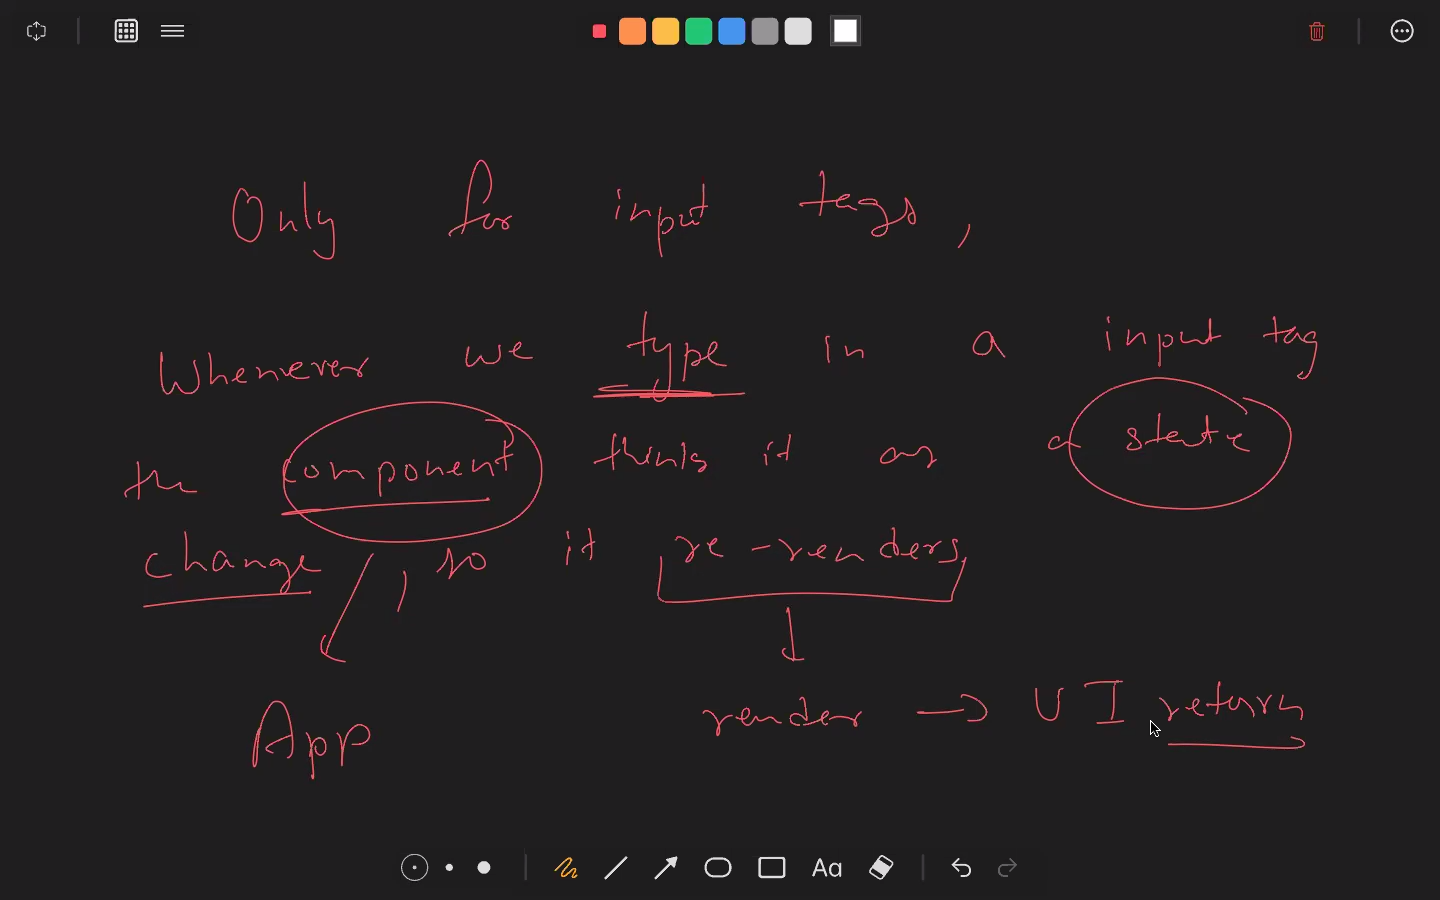 Only for input tags,
Whenever we type in a input tag
the component thinks it as a state
change, so it re-renders
App
render → UI return
Aa